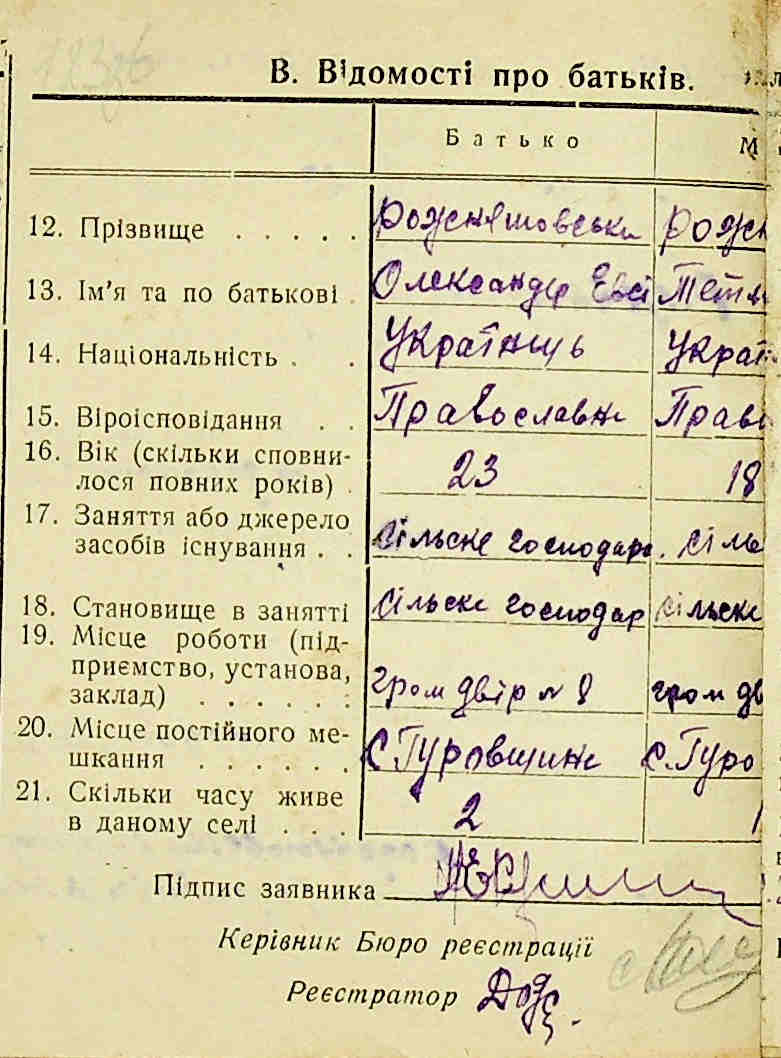 В. Відомості про батьків.
Батько М
12. Прізвище . . . . . Рожняшовськи Рожн
13. Ім'я та по батькові . Олександр Евсі Тетя
14. Національність . . Українць Украї
15. Віроісповідання . . Православне Право
16. Вік (скільки сповни-
лося повних років) . 23 18
17. Заняття або джерело
засобів існування . . сільське господар. сіль
18. Становище в занятті сільске господар сільске
19. Місце роботи (під-
приємство, установа,
заклад) . . . . . : гром двір № 8 гром дв
20. Місце постійного ме-
шкання . . . . . . С. Гуровщине С. Гуро
21. Скільки часу живе
в даному селі . . . 2 1
Підпис заявника
Керівник Бюро реєстрації
Реєстратор